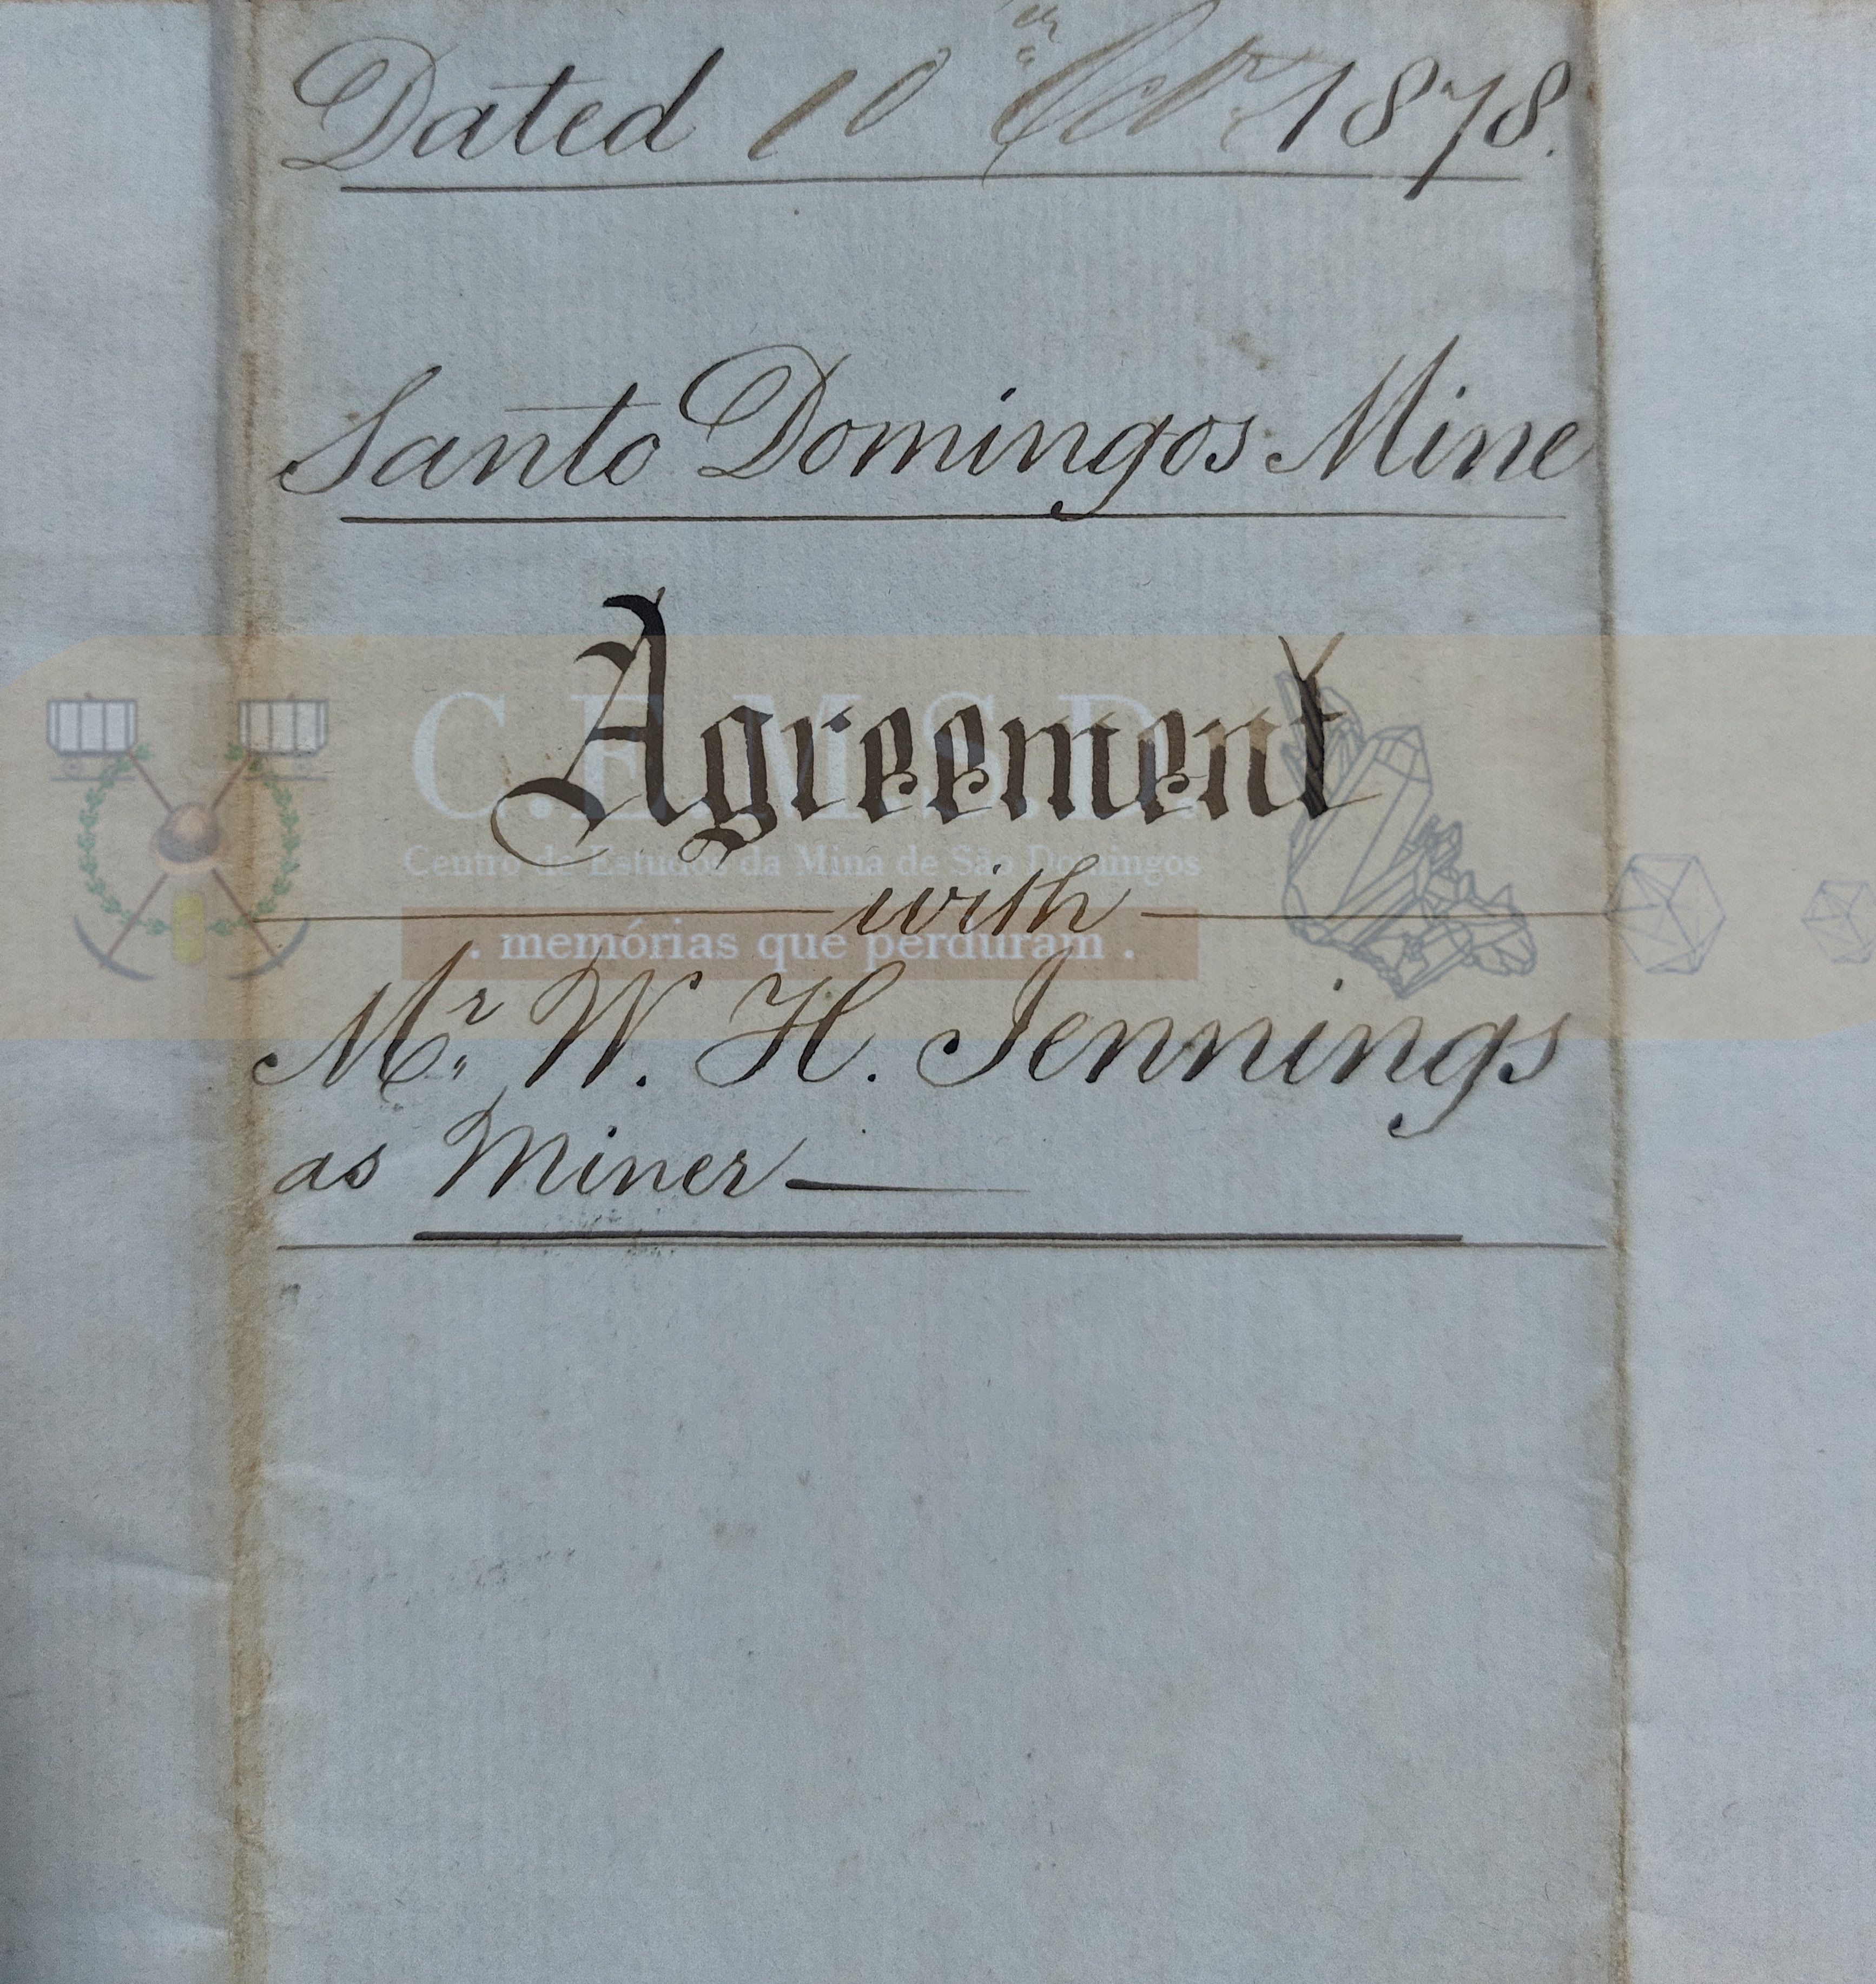 Dated 10th Octr 1878.
Santo Domingos Mine
Agreement
C.E.M.S.D.
Centro de Estudos da Mina de São Domingos
with
. memórias que perduram .
Mr. W. H. Jennings
as Miner